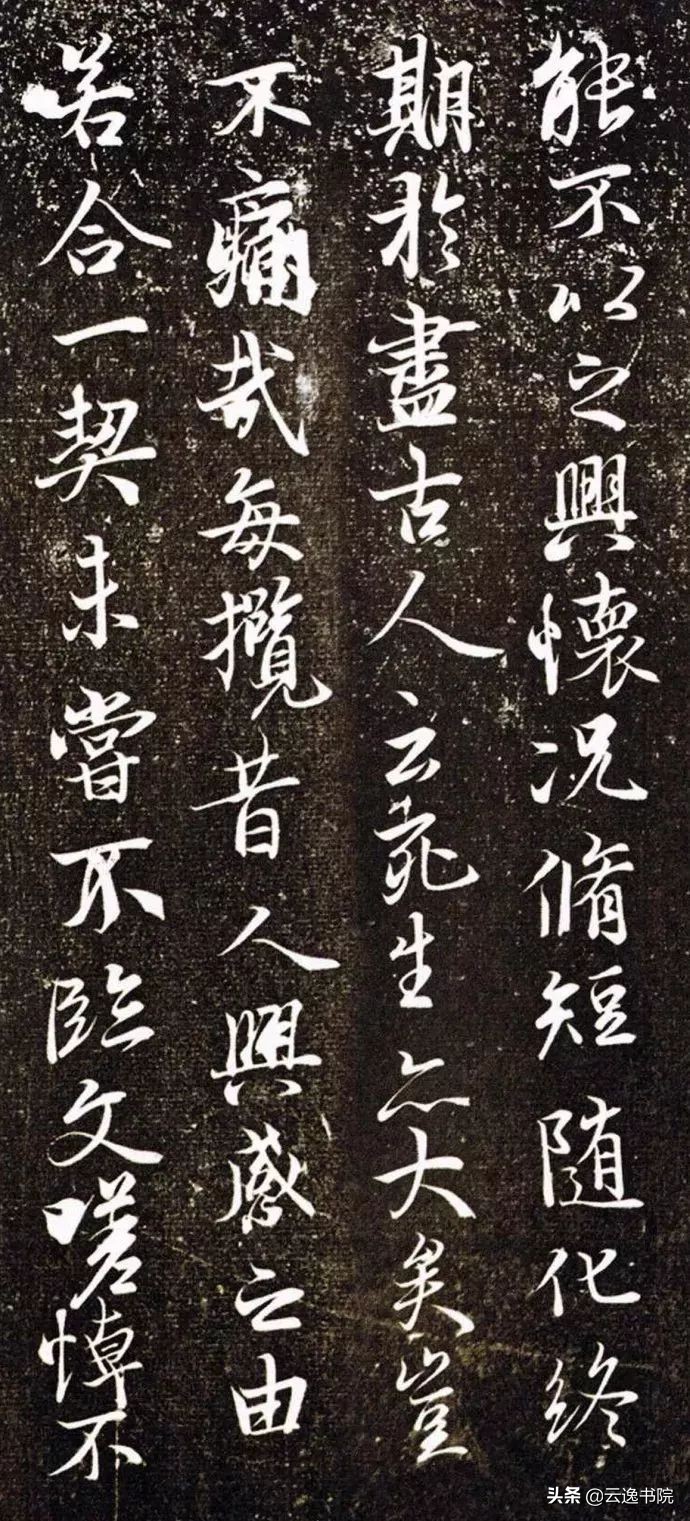 能不以之興懷况脩短随化終
期於盡古人云死生亦大矣豈
不痛哉每攬昔人興感之由
若合一契未嘗不臨文嗟悼不
头条 @云逸书院